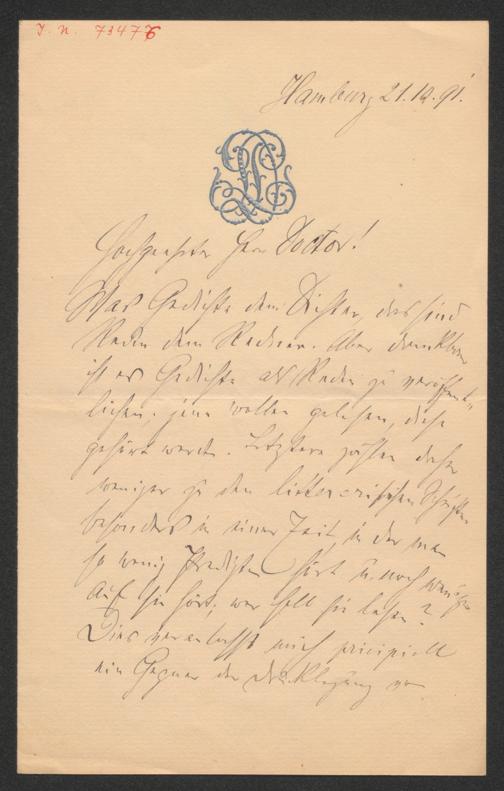 I. N. 73476
Hamburg 21.10.91.
Hochgeehrter Herr Doctor!
Was Gedichte dem Dichter, das sind
Reden dem Redner. Aber dankbarer
ist es Gedichte als Reden zu veröffent-
lichen; jene wollen gelesen, diese
gehört werden. Letztere zählen daher
weniger zu den litterarischen Schriften
besonders in einer Zeit, in der man
so wenig Predigten hört u. noch weniger
auf sie hört; wer soll sie lesen?
Dies veranlasst mich principiell
ein Gegner der Drucklegung von